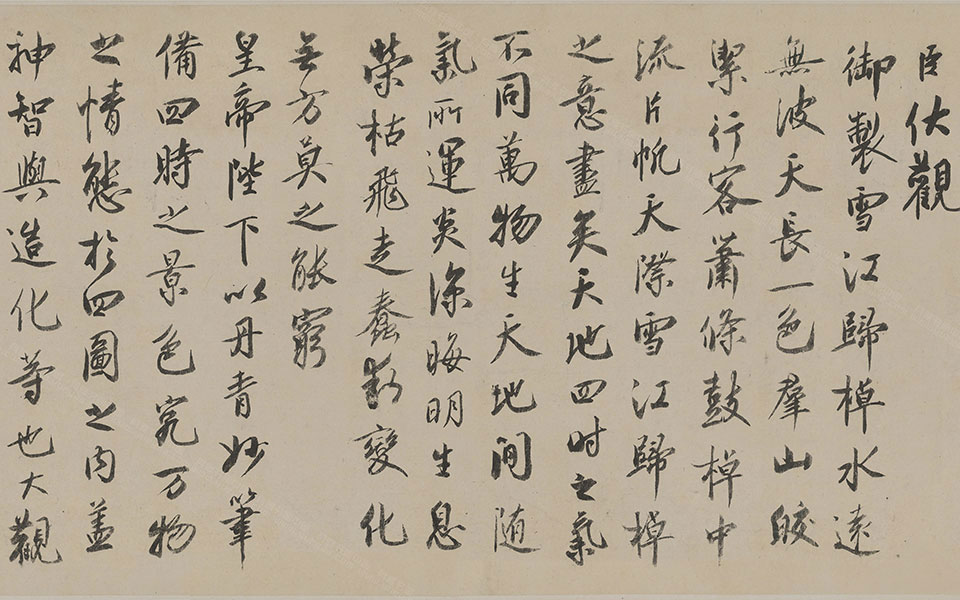 臣伏觀
御製雪江歸棹水遠
無波天長一色羣山皎
潔行客蕭條鼓棹中
流片帆天際雪江歸棹
之意盡矣天地四时之氣
不同萬物生天地间随
氣所運炎涼晦明生息
榮枯飛走蠢動變化
無方莫之能窮
皇帝陛下以丹青妙筆
備四時之景色究万物
之情態於四圖之内盖
神智與造化等也大觀